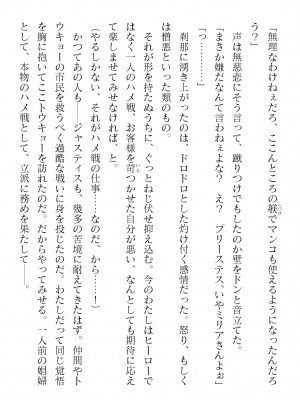 「無理なわけねぇだろ、ここんところの躾でマンコも使えるようになったんだろ
う？」
声は無慈悲にそう言って、蹴りつけでもしたのか壁をドンと音立てた。
「まさか嫌だなんて言わねぇよな？　え？　プリーステス、いやミリアさんよぉ」
「っ………」
刹那に湧き上がったのは、ドロドロとした灼け付く感情だった。怒り、もしく
は憎悪といった類のもの。
それが形を持たぬうちに、ぐっとねじ伏せ抑え込む。今のわたしはヒーローで
はなく一人のハメ戦、お客様を苛つかせた自分が悪い、なんとしても期待に応え
て楽しませてみせなければ、と。
（やるしかない、それがハメ戦の仕事……なのだ、から……！）
かつてあの人も――ジャスティスも、幾多の苦境に耐えてきたはず。仲間やト
ウキョーの市民を救うべく過酷な戦いに身を投じたのだ。わたしだって同じ覚悟
を胸に抱いてここトウキョーを訪れたのだ。だからやってみせる。一人前の娼婦
として、本物のハメ戦として、立派に務めを果たして――。